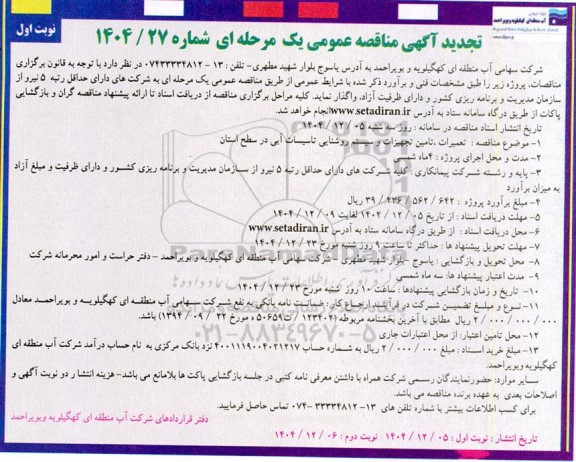 نوبت اول
تجدید آگهی مناقصه عمومی یک مرحله ای شماره ۲۷ / ۱۴۰۴
آب منطقه ای کهگیلویه و بویراحمد
شرکت سهامی آب منطقه ای کهگیلویه و بویراحمد به آدرس یاسوج بلوار شهید مطهری- تلفن : ۱۳ -۰۷۴۳۳۳۳۴۸۱۲ در نظر دارد با توجه به قانون برگزاری
مناقصات، پروژه زیر را طبق مشخصات فنی و برآورد ذکر شده با شرایط عمومی از طریق مناقصه عمومی یک مرحله ای به شرکت های دارای حداقل رتبه ۵ نیرو از
سازمان مدیریت و برنامه ریزی کشور و دارای ظرفیت آزاد، واگذار نماید. کلیه مراحل برگزاری مناقصه از دریافت اسناد تا ارائه پیشنهاد مناقصه گران و بازگشایی
پاکات از طریق درگاه سامانه ستاد به آدرس www.setadiran.ir انجام خواهد شد.
تاریخ انتشار اسناد مناقصه در سامانه : روز سه شنبه ۰۵ / ۱۲ / ۱۴۰۴
۱- موضوع مناقصه : تعمیرات ،تامین تجهیزات و سیستم روشنایی تاسیسات آبی در سطح استان
۲- مدت و محل اجرای پروژه : ۴ماه شمسی
۳- پایه و رشته شرکت پیمانکاری : کلیه شرکت های دارای حداقل رتبه ۵ نیرو از سازمان مدیریت و برنامه ریزی کشور و دارای ظرفیت و مبلغ آزاد
به میزان برآورد
۴- مبلغ برآورد پروژه : ۶۴۲ / ۵۶۲ / ۴۳۶ / ۳۹ ریال
۵- مهلت دریافت اسناد : از تاریخ ۰۵ / ۱۲ / ۱۴۰۴ لغایت ۰۹ / ۱۲ / ۱۴۰۴
۶- محل دریافت اسناد : از طریق درگاه سامانه ستاد به آدرس www.setadiran.ir
۷- مهلت تحویل پیشنهاد ها : حداکثر تا ساعت ۹ روز شنبه مورخ ۲۳ / ۱۲ / ۱۴۰۴
۸- محل تحویل و بازگشایی : یاسوج -بلوار شهید مطهری - شرکت سهامی آب منطقه ای کهگیلویه و بویراحمد – دفتر حراست و امور محرمانه شرکت
۹- مدت اعتبار پیشنهاد ها: سه ماه شمسی
۱۰- تاریخ و زمان بازگشایی پیشنهادها : ساعت ۱۰ روز شنبه مورخ ۲۳ / ۱۲ / ۱۴۰۴
۱۱- نوع و مبلغ تضمین شرکت در فرآیند ارجاع کار: ضمانت نامه بانکی به نفع شرکت سهامی آب منطقه ای کهگیلویه و بویراحمد معادل
۰۰۰ / ۰۰۰ / ۰۰۰ / ۲ ریال مطابق با آخرین بخشنامه مربوطه (۱۲۳۴۰۲ / ت۵۰۶۵۹ ه مورخ ۲۲ / ۰۹ / ۱۳۹۴) باشد.
۱۲- محل تامین اعتبار: از محل اعتبارات جاری
۱۳- مبلغ خرید اسناد : مبلغ ۰۰۰ / ۰۰۰ / ۲ ریال به شماره حساب ۴۰۰۱۱۱۹۰۰۴۰۲۱۲۱۷ نزد بانک مرکزی به نام حساب درآمد شرکت آب منطقه ای
کهگیلویه وبویراحمد.
سایر موارد: حضورنمایندگان رسمی شرکت همراه با داشتن معرفی نامه کتبی در جلسه بازگشایی پاکت ها بلامانع می باشد- هزینه انتشار دو نوبت آگهی و
اصلاحات بعدی به عهده برنده مناقصه می باشد.
برای کسب اطلاعات بیشتر با شماره تلفن های ۱۳- ۳۳۳۳۴۸۱۲ -۰۷۴ تماس حاصل فرمایید.
دفتر قراردادهای شرکت آب منطقه ای کهگیلویه وبویراحمد
تاریخ انتشار : نوبت اول : ۰۵ / ۱۲ / ۱۴۰۴ نوبت دوم : ۰۶ / ۱۲ / ۱۴۰۴
ParsNamadData
۰۲۱-۸۸۳۴۹۶۷۰-۵